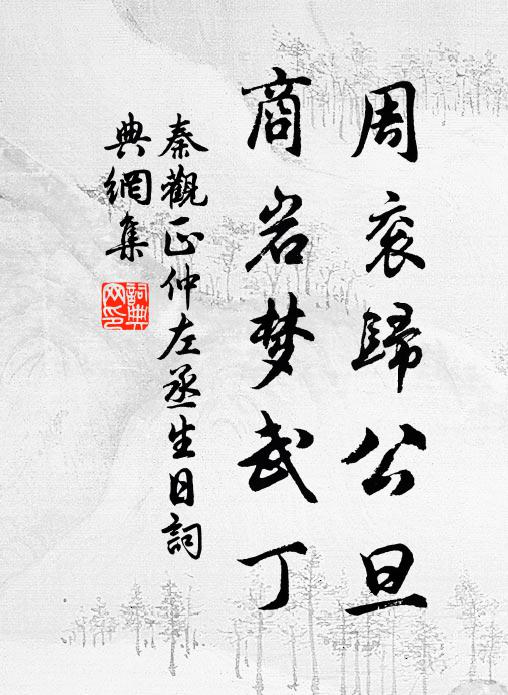 周衮歸公旦
商岩梦武丁
秦觀正仲左丞生日詞
典網集
詞典網印